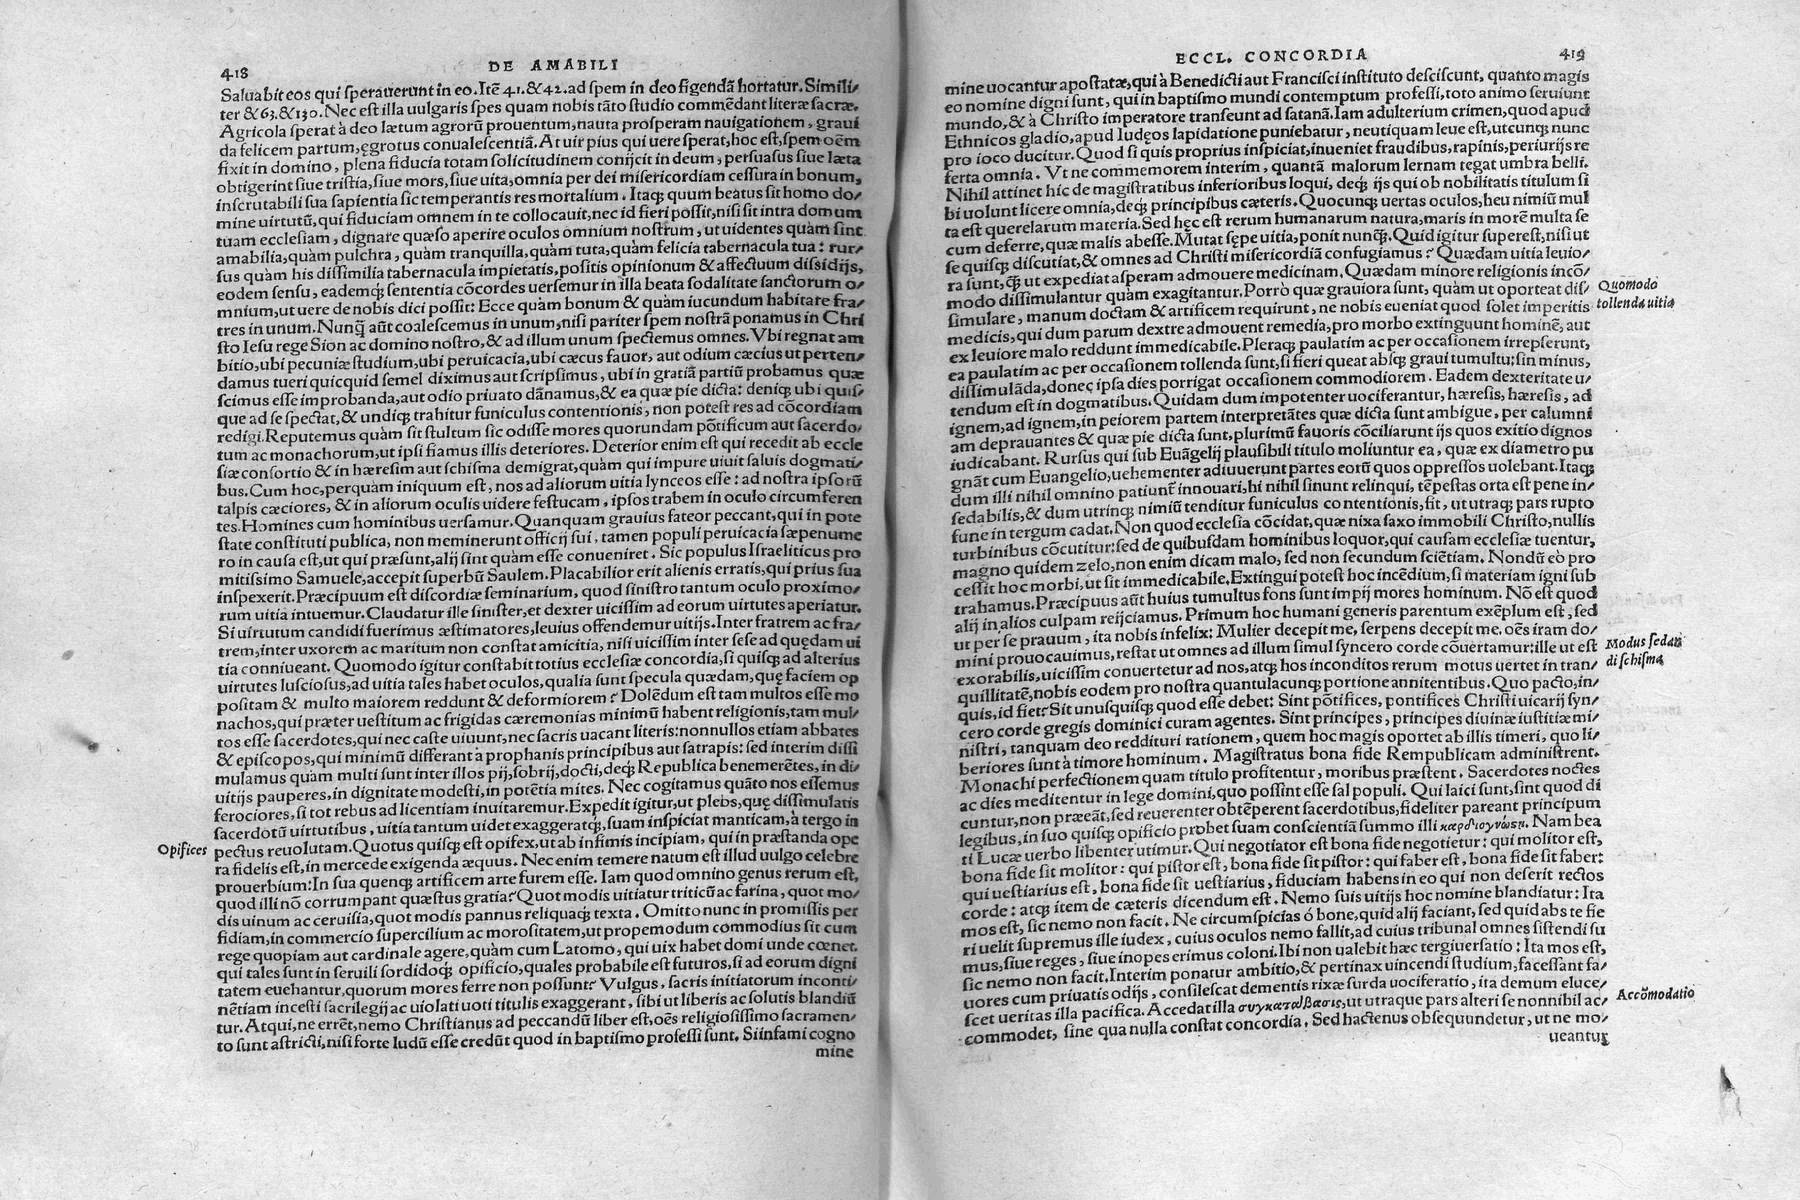 418
DE AMABILI
Saluabit eos qui ſperauerunt in eo. Itẽ 41. &42. ad ſpem in deo figendã hortatur. Simili⸗
ter &63. &130. Nec eſt illa uulgaris ſpes quam nobis tãto ſtudio commẽdant literæ ſacræ.
Agricola ſperat à deo lætum agrorũ prouentum, nauta proſperam nauigationem, graui
da felicem partum, ęgrotus conualeſcentiã. At uir pius qui uere ſperat, hoc eſt, ſpem oẽm
fixit in domino, plena fiducia totam ſolicitudinem conijcit in deum, perſuaſus ſiue læta
obtigerint ſiue triſtia, ſiue mors, ſiue uita, omnia per dei miſericordiam ceſſura in bonum,
inſcrutabili ſua ſapientia ſic temperantis res mortalium. Itaq; quum beatus ſit homo do⸗
mine uirtutũ, qui fiduciam omnem in te collocauit, nec id fieri poſſit, niſi ſit intra domum
tuam eccleſiam, dignare quæſo aperire oculos omnium noſtrum, ut uidentes quàm ſint
amabilia, quàm pulchra, quàm tranquilla, quàm tuta, quàm felicia tabernacula tua: rur⸗
ſus quàm his diſſimilia tabernacula impietatis, poſitis opinionum & affectuum diſſidijs,
eodem ſenſu, eademq; ſententia cõcordes uerſemur in illa beata ſodalitate ſanctorum o⸗
mnium, ut uere de nobis dici poſſit: Ecce quàm bonum & quàm iucundum habitare fra⸗
tres in unum. Nunq̃ aũt coaleſcemus in unum, niſi pariter ſpem noſtrã ponamus in Chri
ſto Ieſu rege Sion ac domino noſtro, & ad illum unum ſpectemus omnes. Vbi regnat am
bitio, ubi pecuniæ ſtudium, ubi peruicacia, ubi cæcus fauor, aut odium cæcius ut perten⸗
damus tueri quicquid ſemel diximus aut ſcripſimus, ubi in gratiã partiũ probamus quæ
ſcimus eſſe improbanda, aut odio priuato dãnamus, & ea quæ pie dicta: deniq; ubi quiſ⸗
que ad ſe ſpectat, & undiq; trahitur funiculus contentionis, non poteſt res ad cõcordiam
redigi. Reputemus quàm ſit ſtultum ſic odiſſe mores quorundam põtificum aut ſacerdo⸗
tum ac monachorum, ut ipſi fiamus illis deteriores. Deterior enim eſt qui recedit ab eccle
ſiæ conſortio & in hæreſim aut ſchiſma demigrat, quàm qui impure uiuit ſaluis dogmati⸗
bus. Cum hoc, perquàm iniquum eſt, nos ad aliorum uitia lynceos eſſe: ad noſtra ipſorũ
talpis cæciores, & in aliorum oculis uidere feſtucam, ipſos trabem in oculo circumferen
tes. Homines cum hominibus uerſamur. Quanquam grauius fateor peccant, qui in pote
ſtate conſtituti publica, non meminerunt officij ſui, tamen populi peruicacia ſæpenume
ro in cauſa eſt, ut qui præſunt, alij ſint quàm eſſe conueniret. Sic populus Iſraeliticus pro
mitiſſimo Samuele, accepit ſuperbũ Saulem. Placabilior erit alienis erratis, qui prius ſua
inſpexerit. Præcipuum eſt diſcordiæ ſeminarium, quod ſiniſtro tantum oculo proximo⸗
rum uitia intuemur. Claudatur ille ſiniſter, et dexter uiciſſim ad eorum uirtutes aperiatur.
Si uirtutum candidi fuerimus æſtimatores, leuius offendemur uitijs. Inter fratrem ac fra⸗
trem, inter uxorem ac maritum non conſtat amicitia, niſi uiciſſim inter ſeſe ad quędam ui
tia conniueant. Quomodo igitur conſtabit totius eccleſiæ concordia, ſi quiſq; ad alterius
uirtutes luſcioſus, ad uitia tales habet oculos, qualia ſunt ſpecula quædam, quę faciem op
poſitam & multo maiorem reddunt & deformiorem? Dolẽdum eſt tam multos eſſe mo
nachos, qui præter ueſtitum ac frigidas cæremonias minimũ habent religionis, tam mul⸗
tos eſſe ſacerdotes, qui nec caſte uiuunt, nec ſacris uacant literis: nonnullos etiam abbates
& epiſcopos, qui minimũ differant à prophanis principibus aut ſatrapis: ſed interim diſſi
mulamus quàm multi ſunt inter illos pij, ſobrij, docti, deq; Republica benemerẽtes, in di⸗
uitijs pauperes, in dignitate modeſti, in potẽtia mites. Nec cogitamus quãto nos eſſemus
ferociores, ſi tot rebus ad licentiam inuitaremur. Expedit igitur, ut plebs, quę diſſimulatis
ſacerdotũ uirtutibus, uitia tantum uidet exaggeratq;, ſuam inſpiciat manticam, à tergo in
Opifices
pectus reuolutam. Quotus quiſq; eſt opifex, ut ab infimis incipiam, qui in præſtanda ope
ra fidelis eſt, in mercede exigenda æquus. Nec enim temere natum eſt illud uulgo celebre
prouerbium: In ſua quenq; artificem arte furem eſſe. Iam quod omnino genus rerum eſt,
quod illi nõ corrumpant quæſtus gratia? Quot modis uitiatur triticũ ac farina, quot mo⸗
dis uinum ac ceruiſia, quot modis pannus reliquaq; texta. Omitto nunc in promiſſis per
fidiam, in commercio ſupercilium ac moroſitatem, ut propemodum commodius ſit cum
rege quopiam aut cardinale agere, quàm cum Latomo, qui uix habet domi unde cœnet.
qui tales ſunt in ſeruili ſordidoq; opificio, quales probabile eſt futuros, ſi ad eorum digni
tatem euehantur, quorum mores ferre non poſſunt? Vulgus, ſacris initiatorum inconti⸗
nẽtiam inceſti ſacrilegij ac uiolati uoti titulis exaggerant, ſibi ut liberis ac ſolutis blandiũ
tur. Atqui, ne errẽt, nemo Chriſtianus ad peccandũ liber eſt, oẽs religioſiſſimo ſacramen⸗
to ſunt aſtricti, niſi forte ludũ eſſe credũt quod in baptiſmo profeſſi ſunt. Si infami cogno
mine
ECCL. CONCORDIA
419
mine uocantur apoſtatæ, qui à Benedicti aut Franciſci inſtituto deſciſcunt, quanto magis
eo nomine digni ſunt, qui in baptiſmo mundi contemptum profeſſi, toto animo ſeruiunt
mundo, & à Chriſto imperatore tranſeunt ad ſatanã. Iam adulterium crimen, quod apud
Ethnicos gladio, apud Iudęos lapidatione puniebatur, neutiquam leue eſt, utcunq; nunc
pro ioco ducitur. Quod ſi quis proprius inſpiciat, inueniet fraudibus, rapinis, periurijs re
ferta omnia. Vt ne commemorem interim, quantã malorum lernam tegat umbra belli.
Nihil attinet hic de magiſtratibus inferioribus loqui, deq; ijs qui ob nobilitatis titulum ſi
bi uolunt licere omnia, deq; principibus cæteris. Quocunq; uertas oculos, heu nimiũ mul
ta eſt querelarum materia. Sed hęc eſt rerum humanarum natura, maris in morẽ multa ſe
cum deferre, quæ malis abeſſe. Mutat ſępe uitia, ponit nunq̃. Quid igitur ſupereſt, niſi ut
ſe quiſq; diſcutiat, & omnes ad Chriſti miſericordiã confugiamus? Quædam uitia leuio⸗
ra ſunt, q̃ ut expediat aſperam admouere medicinam. Quædam minore religionis incõ⸗
modo diſſimulantur quàm exagitantur. Porrò quæ grauiora ſunt, quàm ut oporteat diſ⸗
Quomodo
tollenda uitia
ſimulare, manum doctam & artificem requirunt, ne nobis eueniat quod ſolet imperitis
medicis, qui dum parum dextre admouent remedia, pro morbo extinguunt hominẽ, aut
ex leuiore malo reddunt immedicabile. Pleraq; paulatim ac per occaſionem irrepſerunt,
ea paulatim ac per occaſionem tollenda ſunt, ſi fieri queat abſq; graui tumultu: ſin minus,
diſſimulãda, donec ipſa dies porrigat occaſionem commodiorem. Eadem dexteritate u⸗
tendum eſt in dogmatibus. Quidam dum impotenter uociferantur, hæreſis, hæreſis, ad
ignem, ad ignem, in peiorem partem interpretãtes quæ dicta ſunt ambigue, per calumni
am deprauantes & quæ pie dicta ſunt, plurimũ fauoris cõciliarunt ijs quos exitio dignos
iudicabant. Rurſus qui ſub Euãgelij plauſibili titulo moliuntur ea, quæ ex diametro pu
gnãt cum Euangelio, uehementer adiuuerunt partes eorũ quos oppreſſos uolebant. Itaq;
dum illi nihil omnino patiunt̃ innouari, hi nihil ſinunt relinqui, tẽpeſtas orta eſt pene in⸗
ſedabilis, & dum utrinq; nimiũ tenditur funiculus contentionis, fit, ut utraq; pars rupto
fune in tergum cadat. Non quod eccleſia cõcidat, quæ nixa ſaxo immobili Chriſto, nullis
turbinibus cõcutitur: ſed de quibuſdam hominibus loquor, qui cauſam eccleſiæ tuentur,
magno quidem zelo, non enim dicam malo, ſed non ſecundum ſciẽtiam. Nondũ eò pro
ceſſit hoc morbi, ut ſit immedicabile. Extingui poteſt hoc incẽdium, ſi materiam igni ſub
trahamus. Præcipuus aũt huius tumultus fons ſunt impij mores hominum. Nõ eſt quod
alij in alios culpam reijciamus. Primum hoc humani generis parentum exẽplum eſt, ſed
ut per ſe prauum, ita nobis infelix: Mulier decepit me, ſerpens decepit me. oẽs iram do⸗
mini prouocauimus, reſtat ut omnes ad illum ſimul ſyncero corde cõuertamur: ille ut eſt
Modus ſedan
di ſchiſma
exorabilis, uiciſſim conuertetur ad nos, atq; hos inconditos rerum motus uertet in tran⸗
quillitatẽ, nobis eodem pro noſtra quantulacunq; portione annitentibus. Quo pacto, in⸗
quis, id fiet? Sit unuſquiſq; quod eſſe debet: Sint põtifices, pontifices Chriſti uicarij ſyn⸗
cero corde gregis dominici curam agentes. Sint principes, principes diuinæ iuſtitiæ mi⸗
niſtri, tanquam deo reddituri rationem, quem hoc magis oportet ab illis timeri, quo li⸗
beriores ſunt à timore hominum. Magiſtratus bona fide Rempublicam adminiſtrent.
Monachi perfectionem quam titulo profitentur, moribus præſtent. Sacerdotes noctes
ac dies meditentur in lege domini, quo poſſint eſſe ſal populi. Qui laici ſunt, ſint quod di
cuntur, non præeãt, ſed reuerenter obtẽperent ſacerdotibus, fideliter pareant principum
legibus, in ſuo quiſq; opificio probet ſuam conſcientiã ſummo illi καρδιογνώστη. Nam bea
ti Lucæ uerbo libenter utimur. Qui negotiator eſt bona fide negotietur: qui molitor eſt,
bona fide ſit molitor: qui piſtor eſt, bona fide ſit piſtor: qui faber eſt, bona fide ſit faber:
qui ueſtiarius eſt, bona fide ſit ueſtiarius, fiduciam habens in eo qui non deſerit rectos
corde: atq; item de cæteris dicendum eſt. Nemo ſuis uitijs hoc nomine blandiatur: Ita
mos eſt, ſic nemo non facit. Ne circumſpicias ó bone, quid alij faciant, ſed quid abs te fie
ri uelit ſupremus ille iudex, cuius oculos nemo fallit, ad cuius tribunal omnes ſiſtendi ſu
mus, ſiue reges, ſiue inopes erimus coloni. Ibi non ualebit hæc tergiuerſatio: Ita mos eſt,
ſic nemo non facit. Interim ponatur ambitio, & pertinax uincendi ſtudium, faceſſant fa⸗
uores cum priuatis odijs, conſileſcat dementis rixæ ſurda uociferatio, ita demum eluce⸗
Accõmodatio
ſcet ueritas illa pacifica. Accedat illa συγκατάβασις, ut utraque pars alteri ſe nonnihil ac⸗
commodet, ſine qua nulla conſtat concordia. Sed hactenus obſequundetur, ut ne mo⸗
ueantur